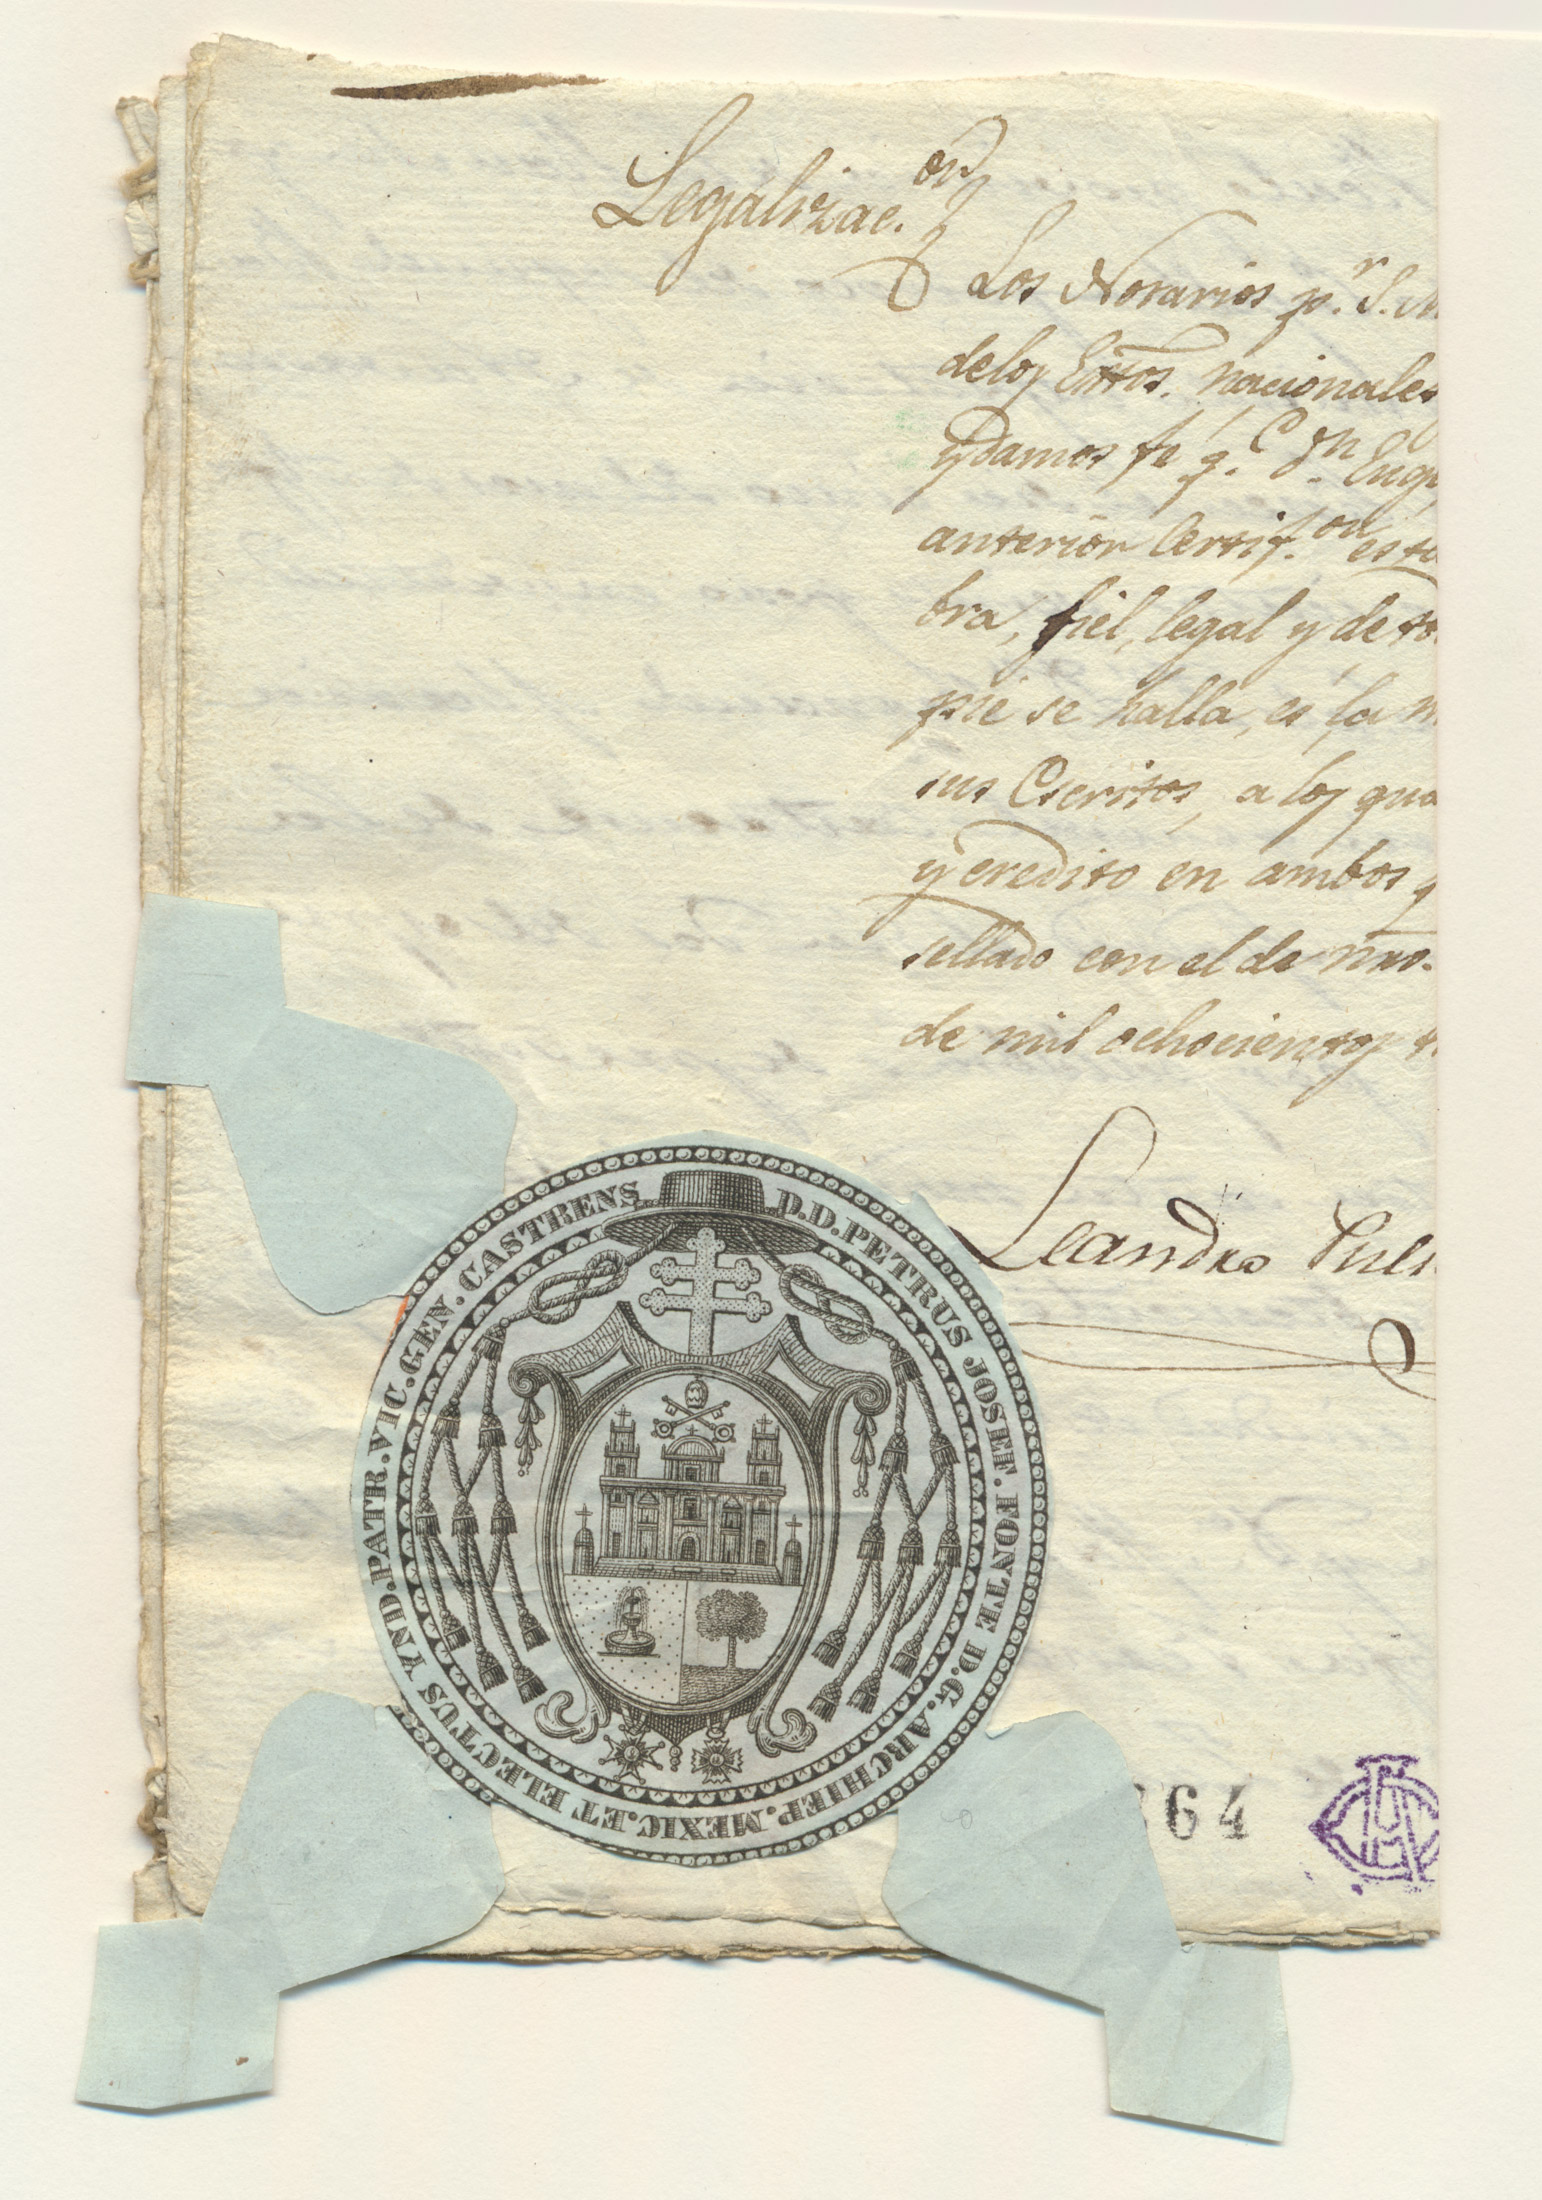 Legalizac.on
Los Notarios p.r S. M
delos Estos. nacionales
y damos fe q.e Dn. Eug
anterior Certif.on esta
bra, fiel, legal y de to
pie se halla, es la m
sus Escritos, a los qua
y credito en ambos
sellado con el de nro.
de mil ochocientos t
Leandro
D.D.PETRUS JOSEF. FONTE D.G.ARCHIEP.MEXIC.ET ELECTUS YND.PATR.VIC.GEN.CASTRENS
64